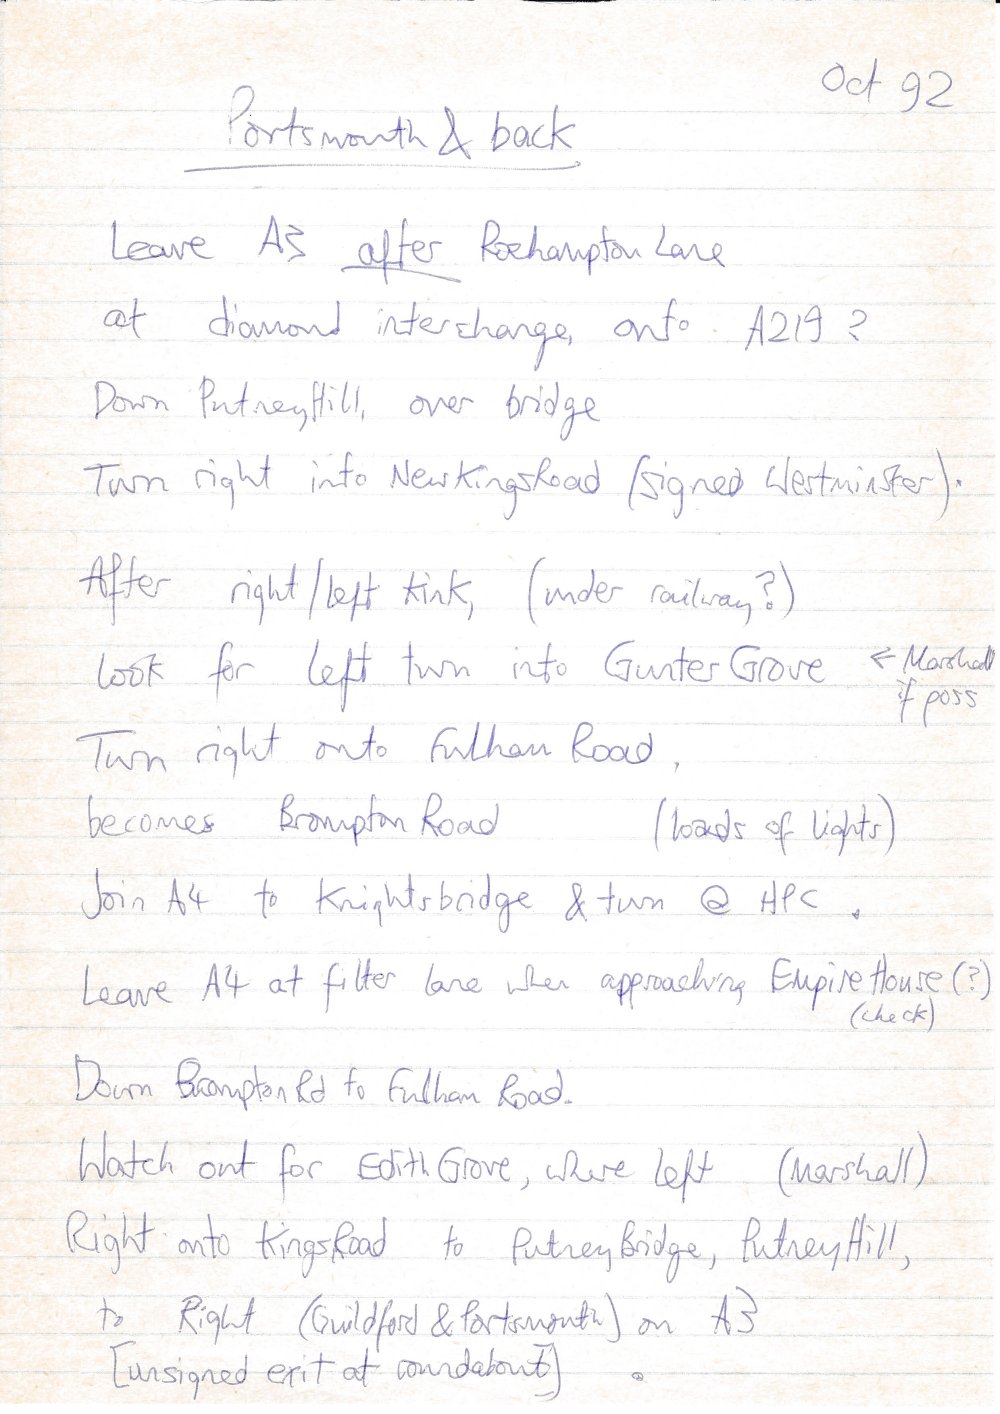 Oct 92
Portsmouth & back
Leave A3 after Roehampton Lane
at diamond interchange, onto A219 ?
Down Putney Hill, over bridge
Turn right into New Kings Road (signed Westminster).
After right/left kink, (under railway?)
look for left turn into Gunter Grove ← Marshall
if poss
Turn right onto Fulham Road,
becomes Brompton Road (loads of lights)
Join A4 to Knightsbridge & turn @ HPC.
Leave A4 at filter lane when approaching Empire House (?)
(check)
Down Brompton Rd to Fulham Road.
Watch out for Edith Grove, where left (Marshall)
Right onto Kings Road to Putney Bridge, Putney Hill,
to Right (Guildford & Portsmouth) on A3
[unsigned exit at roundabout] .